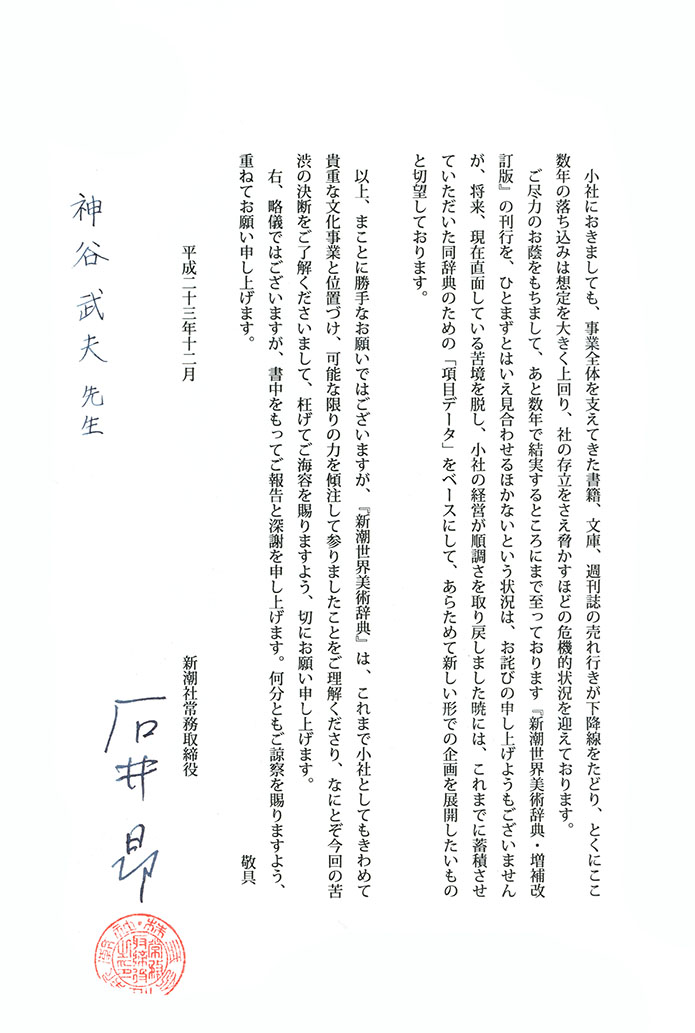 小社におきましても、事業全体を支えてきた書籍、文庫、週刊誌の売れ行きが下降線をたどり、とくにここ
数年の落ち込みは想定を大きく上回り、社の存立をさえ脅かすほどの危機的状況を迎えております。
ご尽力のお蔭をもちまして、あと数年で結実するところにまで至っております『新潮世界美術辞典・増補改
訂版』の刊行を、ひとまずとはいえ見合わせるほかないという状況は、お詫びの申し上げようもございません
が、将来、現在直面している苦境を脱し、小社の経営が順調さを取り戻しました暁には、これまでに蓄積させ
ていただいた同辞典のための「項目データ」をベースにして、あらためて新しい形での企画を展開したいもの
と切望しております。
以上、まことに勝手なお願いではございますが、『新潮世界美術辞典』は、これまで小社としてもきわめて
貴重な文化事業と位置づけ、可能な限りの力を傾注して参りましたことをご理解くださり、なにとぞ今回の苦
渋の決断をご了解くださいまして、枉げてご海容を賜りますよう、切にお願い申し上げます。
右、略儀ではございますが、書中をもってご報告と深謝を申し上げます。何分ともご諒察を賜りますよう、
重ねてお願い申し上げます。
敬具
平成二十三年十二月
新潮社常務取締役
石井昂
神谷武夫先生